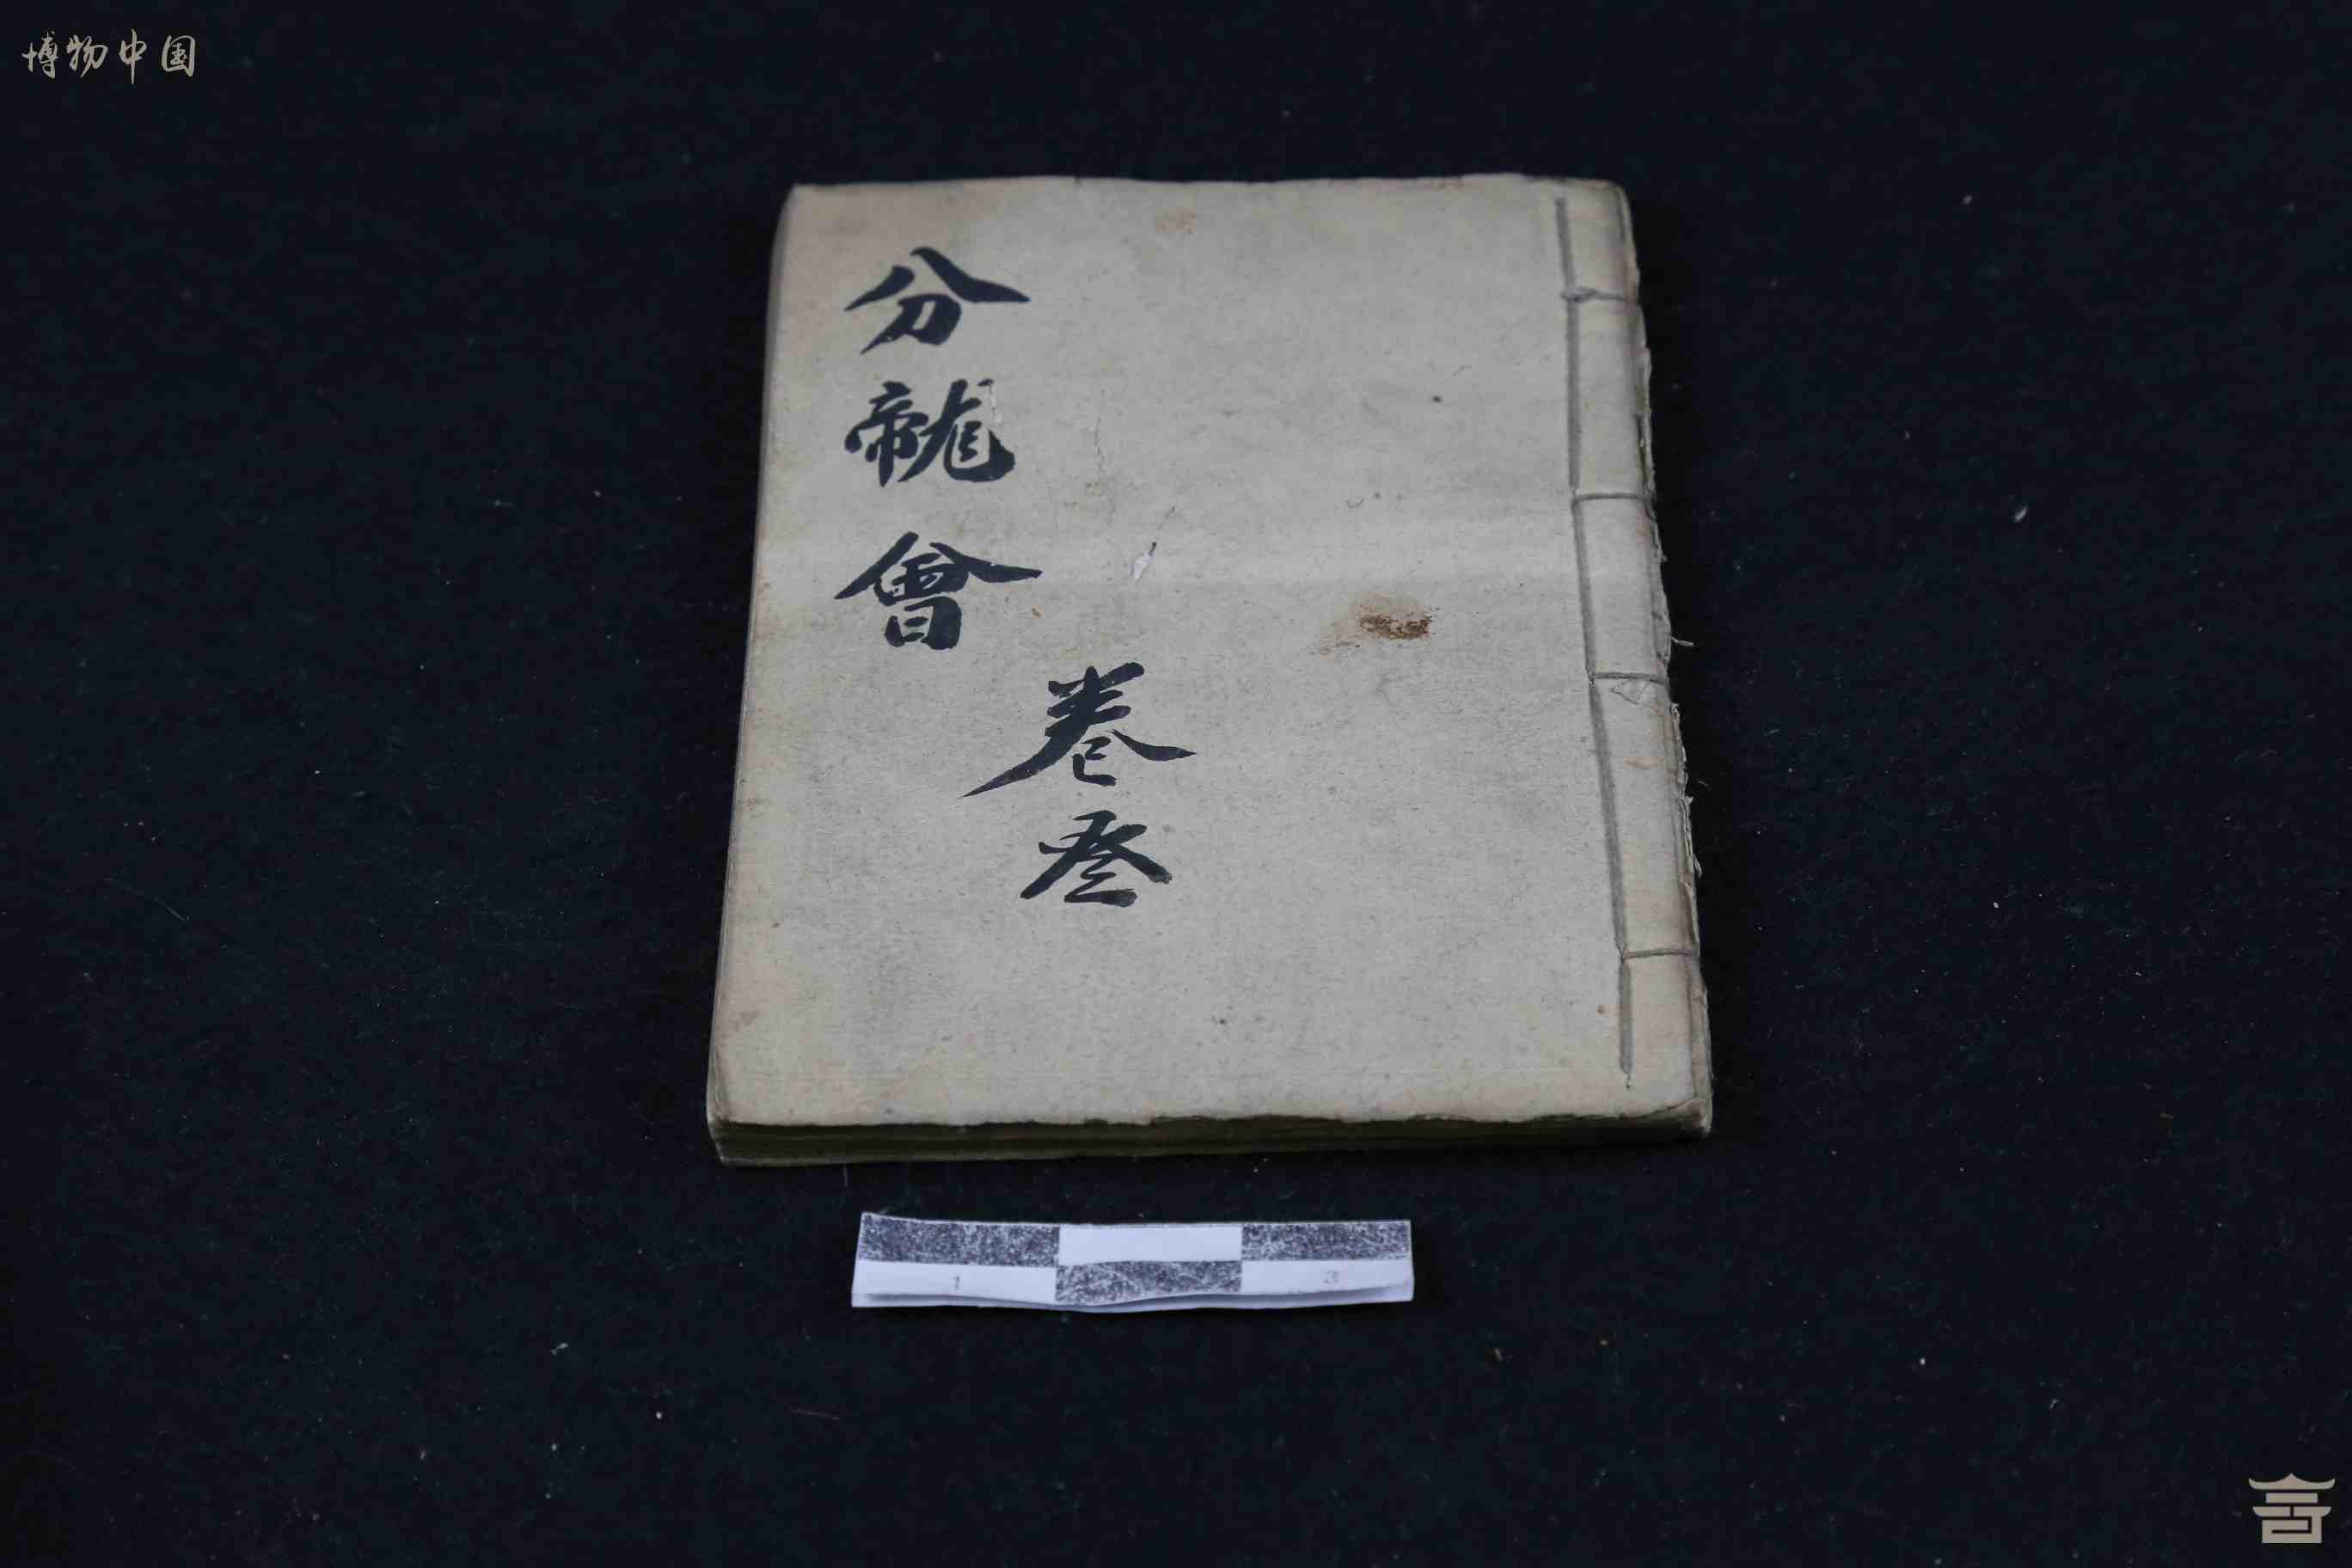 博物中国
分龍會
卷叁
1
3